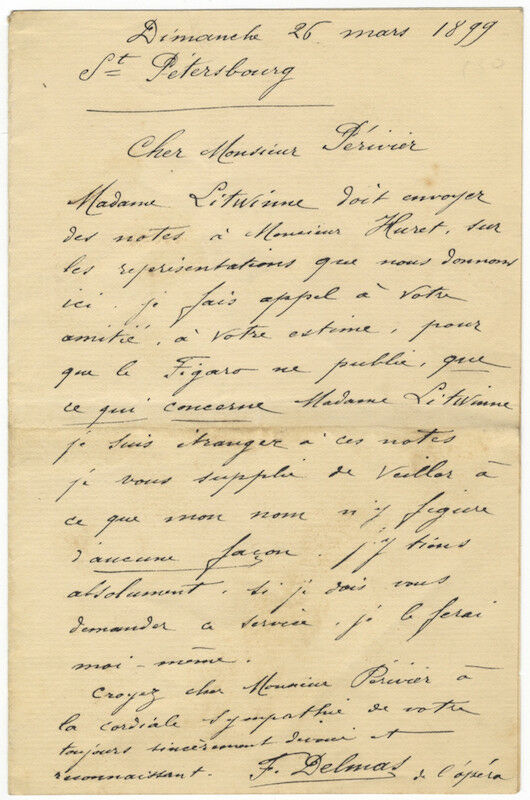 Dimanche 26 mars 1899
St Pétersbourg
Cher Monsieur Périvier
Madame Litwinne doit envoyer
des notes à Monsieur Huret, sur
les représentations que nous donnons
ici. je fais appel à votre
amitié, à votre estime, pour
que le Figaro ne publie, que
ce qui concerne Madame Litwinne
je suis étranger à ces notes
je vous supplie de veiller à
ce que mon nom n'y figure
d'aucune façon. j'y tiens
absolument, si je dois vous
demander ce service, je le ferai
moi-même.
Croyez cher Monsieur Périvier à
la cordiale sympathie de votre
toujours sincèrement dévoué et
reconnaissant. F. Delmas de l'opéra